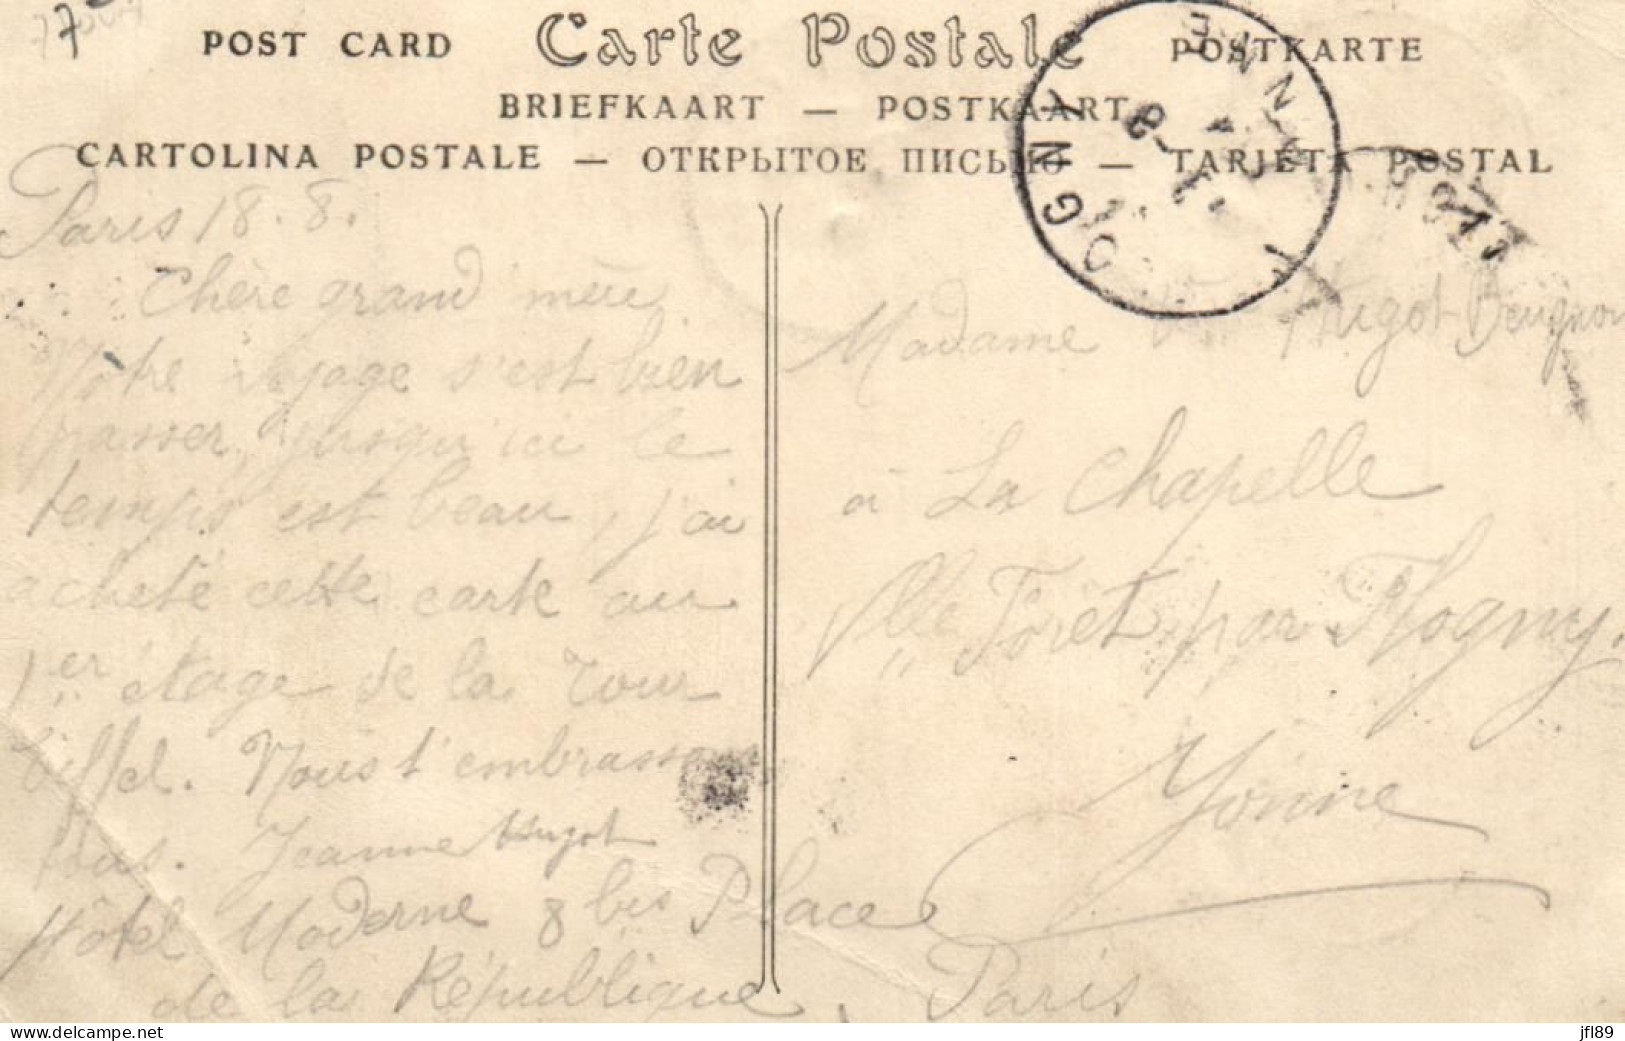 POST CARD Carte Postale POSTKARTE
BRIEFKAART — POSTKAART
CARTOLINA POSTALE — ОТКРЫТОЕ ПИСЬМО — TARJETA POSTAL
Paris 18. 8.
Chère grand mère
Nôtre voyage s'est bien
passer, jusqu'ici le
temps est beau, j'ai
acheté cette carte au
1er étage de la Tour
Eiffel. Nous t'embrassons
tous. Jeanne Hugot
Hôtel Moderne 8 bis Place
de la République, Paris
Madame Hugot-Beugnon
à La Chapelle
Vlle Forêt par Flogny.
Yonne
FLOGNY
YONNE
www.delcampe.net
jfl89